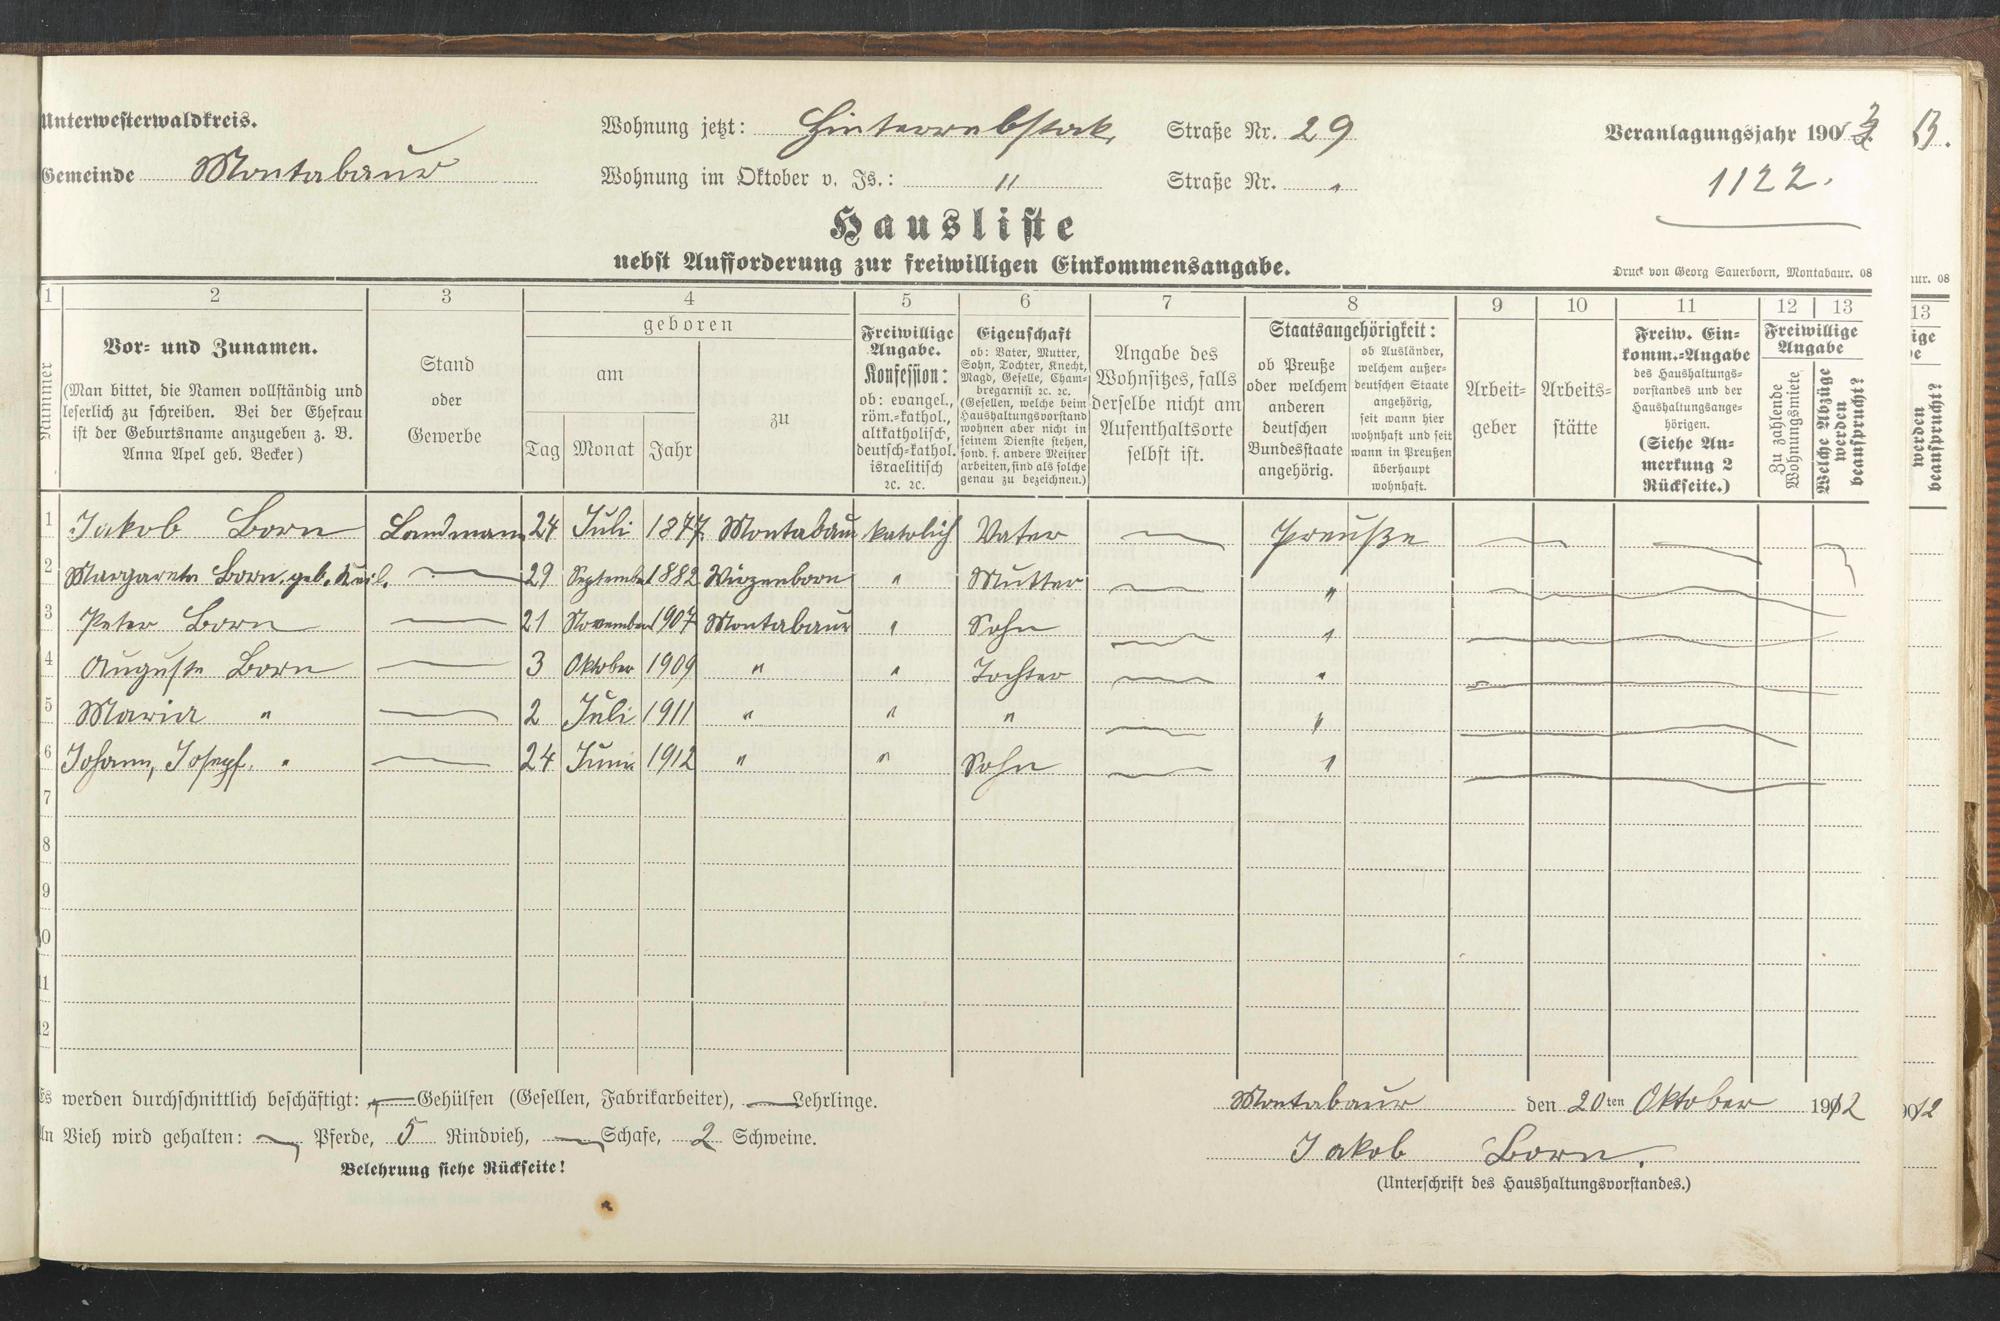 Unterwesterwaldkreis.
Wohnung jetzt: Hinterrebstock, Straße Nr. 29
Veranlagungsjahr 1913
B.
Gemeinde Montabaur
Wohnung im Oktober v. Js.: " Straße Nr. "
1122.
Hausliste
nebst Aufforderung zur freiwilligen Einkommensangabe.
Druck von Georg Sauerborn, Montabaur. 08
ur. 08
1 2 3 4 5 6 7 8 9 10 11 12 13
13
Nummer
Vor- und Zunamen.
(Man bittet, die Namen vollständig und
leserlich zu schreiben. Bei der Ehefrau
ist der Geburtsname anzugeben z. B.
Anna Apel geb. Becker)
Stand
oder
Gewerbe
geboren
am
Tag Monat Jahr
zu
Freiwillige
Angabe.
Konfession:
ob: evangel.,
röm.-kathol.,
altkatholisch,
deutsch-kathol.
israelitisch
ꝛc. ꝛc.
Eigenschaft
ob: Vater, Mutter,
Sohn, Tochter, Knecht,
Magd, Geselle, Cham-
bregarnist ꝛc. ꝛc.
(Gesellen, welche beim
Haushaltungsvorstand
wohnen aber nicht in
seinem Dienste stehen,
sond. f. andere Meister
arbeiten, sind als solche
genau zu bezeichnen.)
Angabe des
Wohnsitzes, falls
derselbe nicht am
Aufenthaltsorte
selbst ist.
Staatsangehörigkeit:
ob Preuße
oder welchem
anderen
deutschen
Bundesstaate
angehörig.
ob Ausländer,
welchem außer-
deutschen Staate
angehörig,
seit wann hier
wohnhaft und seit
wann in Preußen
überhaupt
wohnhaft.
Arbeit-
geber
Arbeits-
stätte
Freiw. Ein-
komm.-Angabe
des Haushaltungs-
vorstandes und der
Haushaltungsange-
hörigen.
(Siehe An-
merkung 2
Rückseite.)
Freiwillige
Angabe
Zu zahlende
Wohnungsmiete
Welche Abzüge
werden
beansprucht?
ige
be
werden
beansprucht?
1 Jakob Born Landmann 24 Juli 1877 Montabaur katolisch Vater Preuße
2 Margareta Born. geb. Keil. 29 September 1882 Wirzenborn " Mutter "
3 Peter Born 21 November 1907 Montabaur " Sohn "
4 Auguste Born 3 Oktober 1909 " " Tochter "
5 Maria " 2 Juli 1911 " " " "
6 Johann, Josepf. " 24 Juni 1912 " " Sohn "
7
8
9
10
11
12
Es werden durchschnittlich beschäftigt: — Gehülfen (Gesellen, Fabrikarbeiter), — Lehrlinge.
Montabaur den 20ten Oktober 1912
12
An Vieh wird gehalten: — Pferde, 5 Rindvieh, — Schafe, 2 Schweine.
Jakob Born.
Belehrung siehe Rückseite!
(Unterschrift des Haushaltungsvorstandes.)